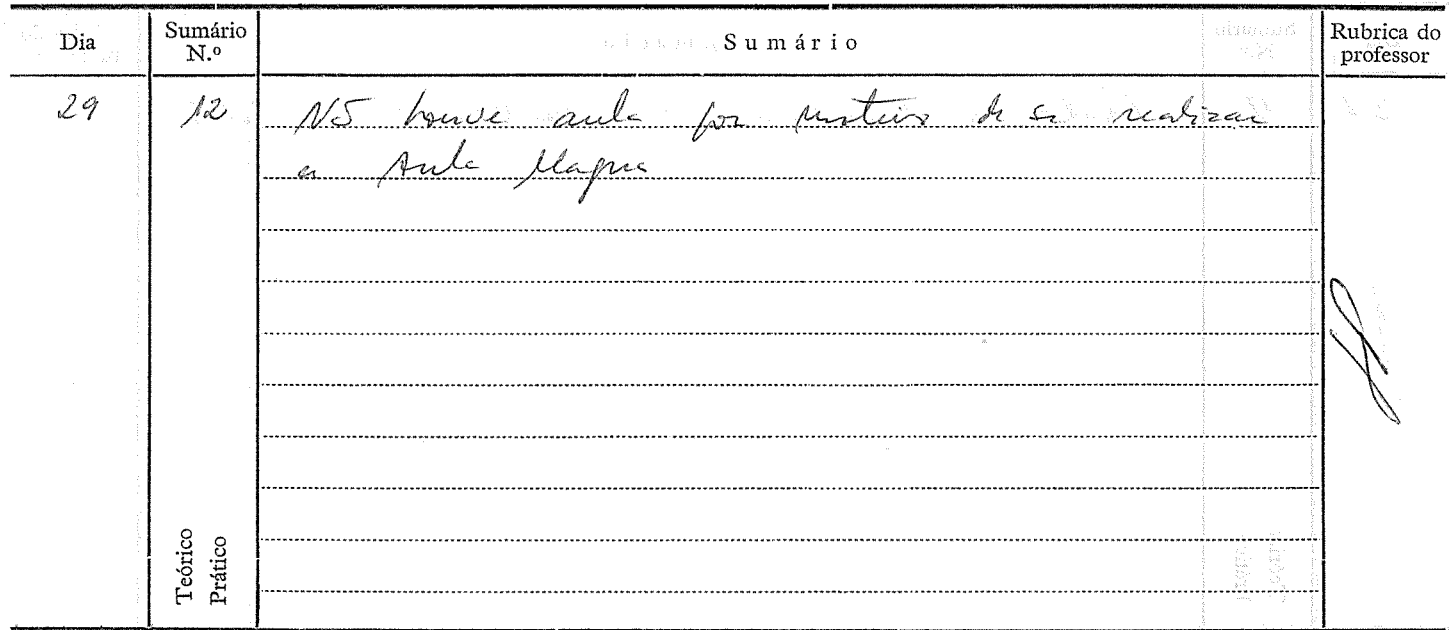 Dia
Sumário N.º
Sumário
Rubrica do professor
29
12
Não houve aula por motivo de se realizar
a Aula Magna
Teórico
Prático